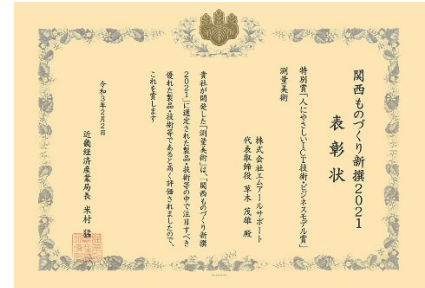 関西ものづくり新撰2021
表彰状
特別賞「人にやさしいICT技術・ビジネスモデル賞」
測量美術
株式会社エムアールサポート
代表取締役 草木 茂雄 殿
貴社が開発した「測量美術」は、「関西ものづくり新撰
2021」に選定された製品・技術等の中で注目すべき
優れた製品・技術等であると高く評価されましたので、
これを賞します
令和3年2月2日
近畿経済産業局長 米村 猛